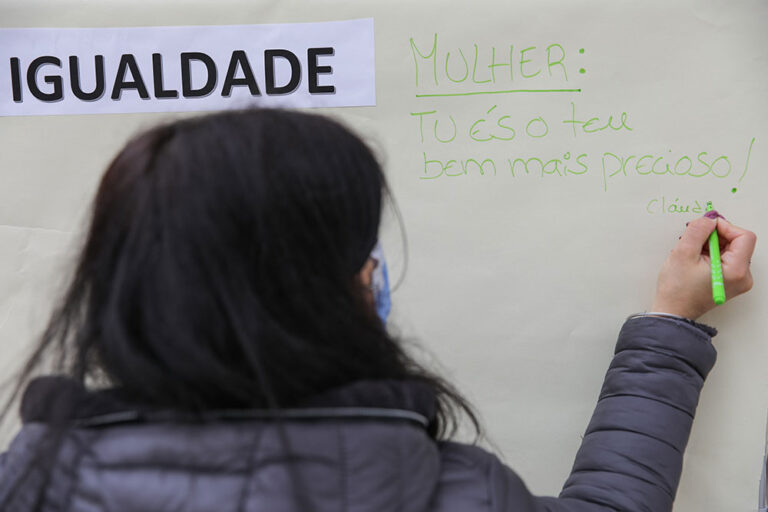 IGUALDADE
MULHER:
Tu És o teu
bem mais precioso!